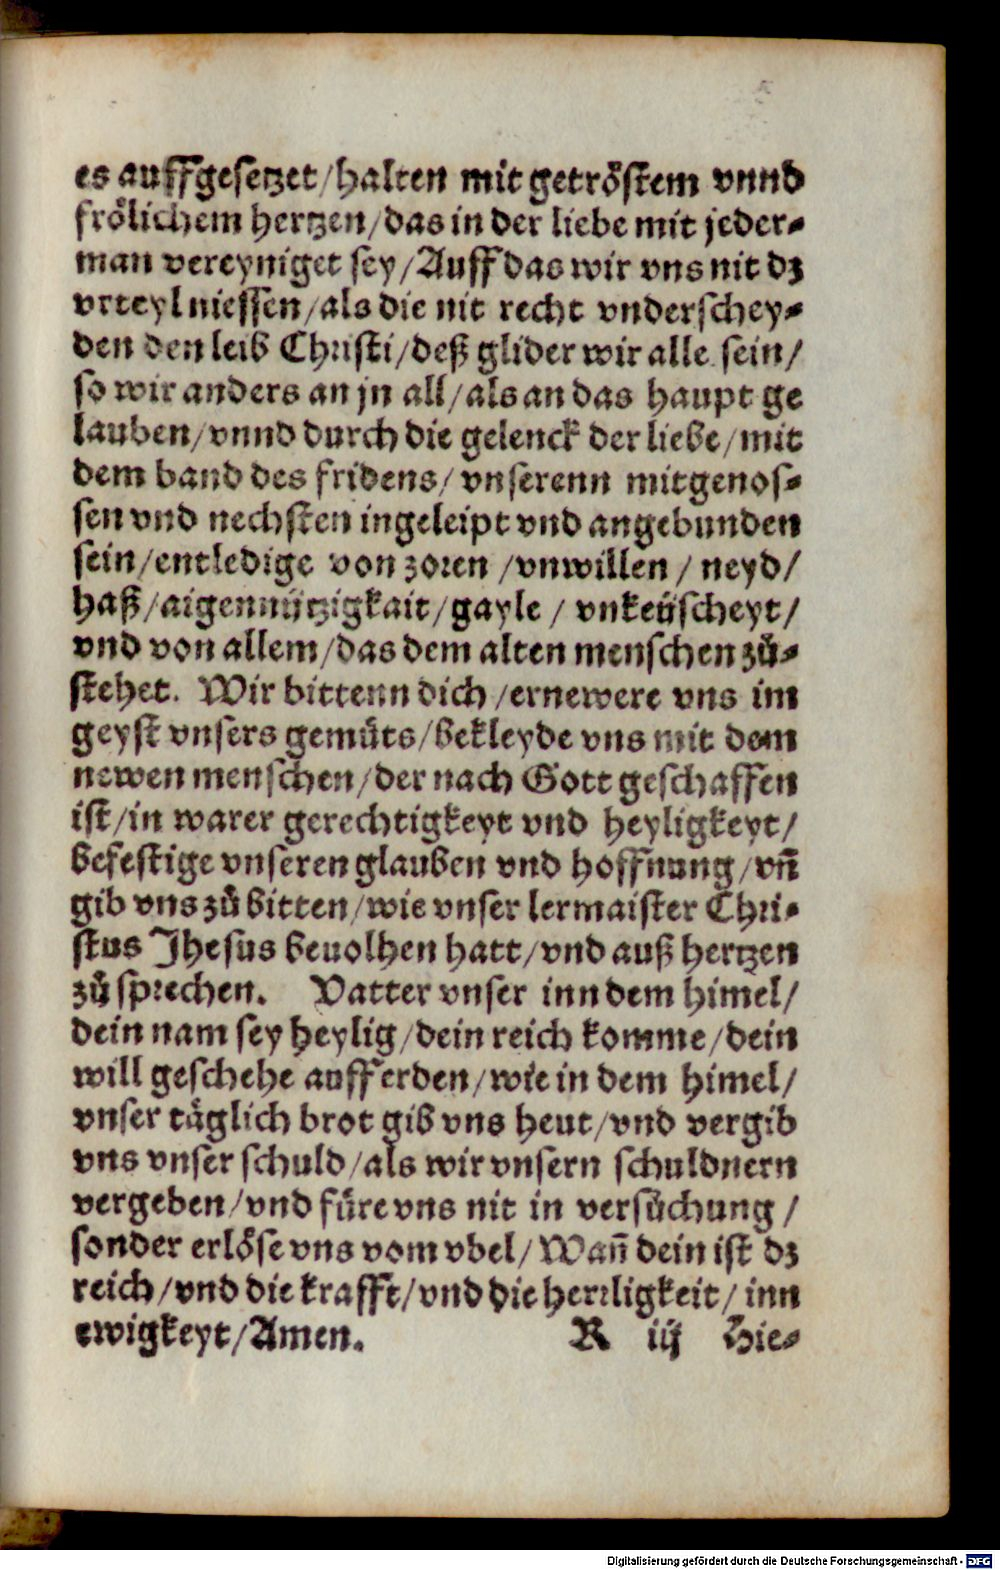 es auffgesetzet/halten mit getröstem vnnd
frölichem hertzen/das in der liebe mit jeder-
man vereyniget sey/Auff das wir vns nit dz
vrteyl niessen/als die nit recht vnderschey-
den den leib Christi/deß glider wir alle sein/
so wir anders an jn all/als an das haupt ge
lauben/vnnd durch die gelenck der liebe/mit
dem band des fridens/vnserenn mitgenos-
sen vnd nechsten ingeleipt vnd angebunden
sein/entledige von zoren/vnwillen/neyd/
haß/aigennützigkait/gayle/vnkeüscheyt/
vnd von allem/das dem alten menschen zů-
stehet. Wir bittenn dich/ernewere vns im
geyst vnsers gemüts/bekleyde vns mit dem
newen menschen/der nach Gott geschaffen
ist/in warer gerechtigkeyt vnd heyligkeyt/
befestige vnseren glauben vnd hoffnung/vñ
gib vns zů bitten/wie vnser lermaister Chri-
stus Jhesus beuolhen hatt/vnd auß hertzen
zů sprechen. Vatter vnser inn dem himel/
dein nam sey heylig/dein reich komme/dein
will geschehe auff erden/wie in dem himel/
vnser täglich brot gib vns heut/vnd vergib
vns vnser schuld/als wir vnsern schuldnern
vergeben/vnd füre vns nit in versůchung/
sonder erlöse vns vom vbel/Wañ dein ist dz
reich/vnd die krafft/vnd die herrligkeit/inn
ewigkeyt/Amen. R iij Hie-
Digitalisierung gefördert durch die Deutsche Forschungsgemeinschaft - DFG